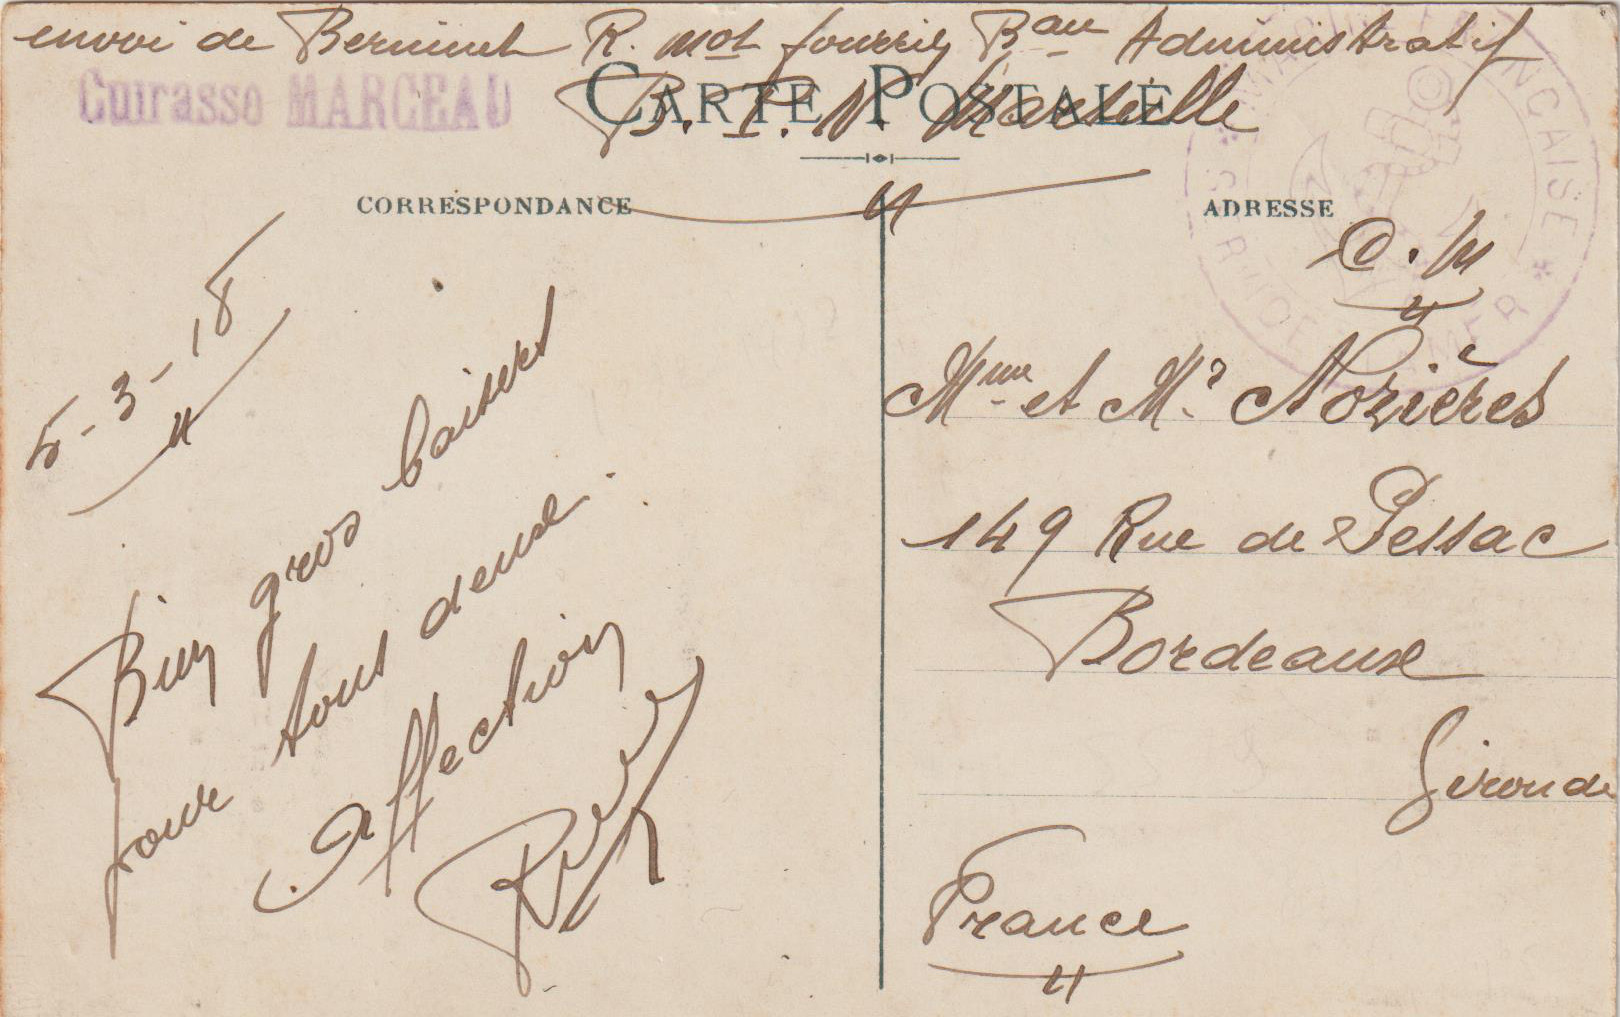 envoi de Berninet R. Mot fourrier Bau Administratif
Cuirasso MARCEAU
CARTE POSTALE
B. P. N. Marseille
CORRESPONDANCE
ADRESSE
MARINE FRANÇAISE
SERVICE À LA MER
C. M
5-3-18
Bien gros baisers
pour tous deux.
Affection
Mme et Mr Nozières
149 Rue de Pessac
Bordeaux
Gironde
France